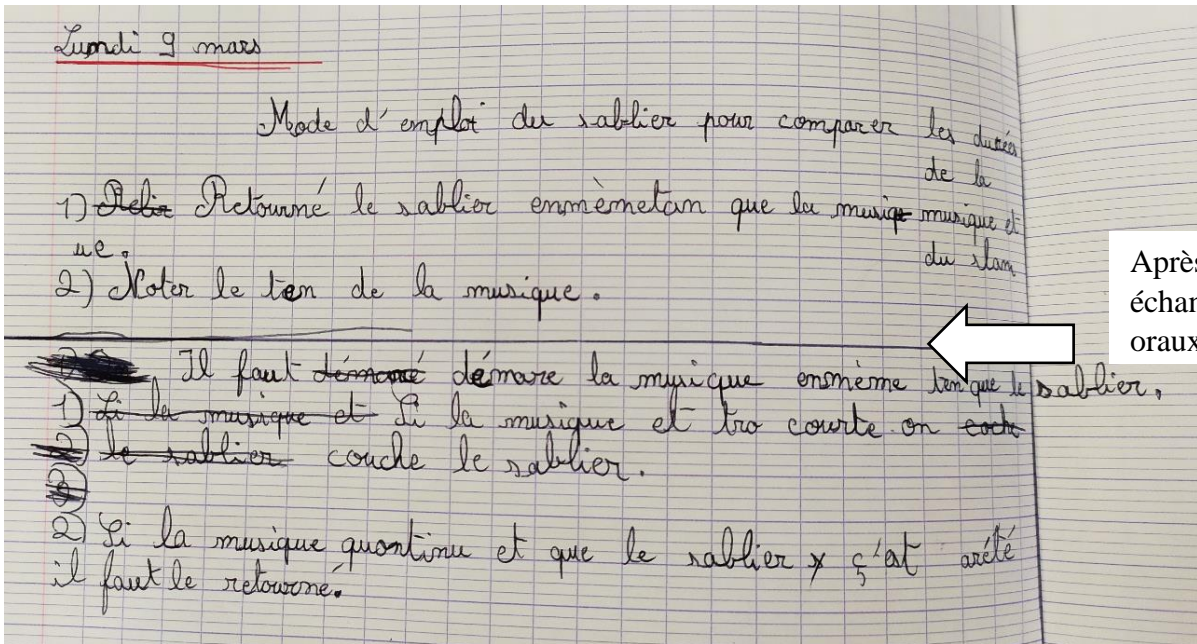 Lundi 9 mars
Mode d'emploi du sablier pour comparer les durées
de la
1) Relir Retourné le sablier enmèmetan que la musiqe musique et
ue.
du slam
2) Noter le ten de la musique.
Après
échan
oraux
Il faut démaré démare la musique enmème ten que le sablier.
1) Si la musique et Si la musique et tro courte on coche
2) le sablier couche le sablier.
3)
2) Si la musique quontinu et que le sablier ç'est arété
il faut le retourné.